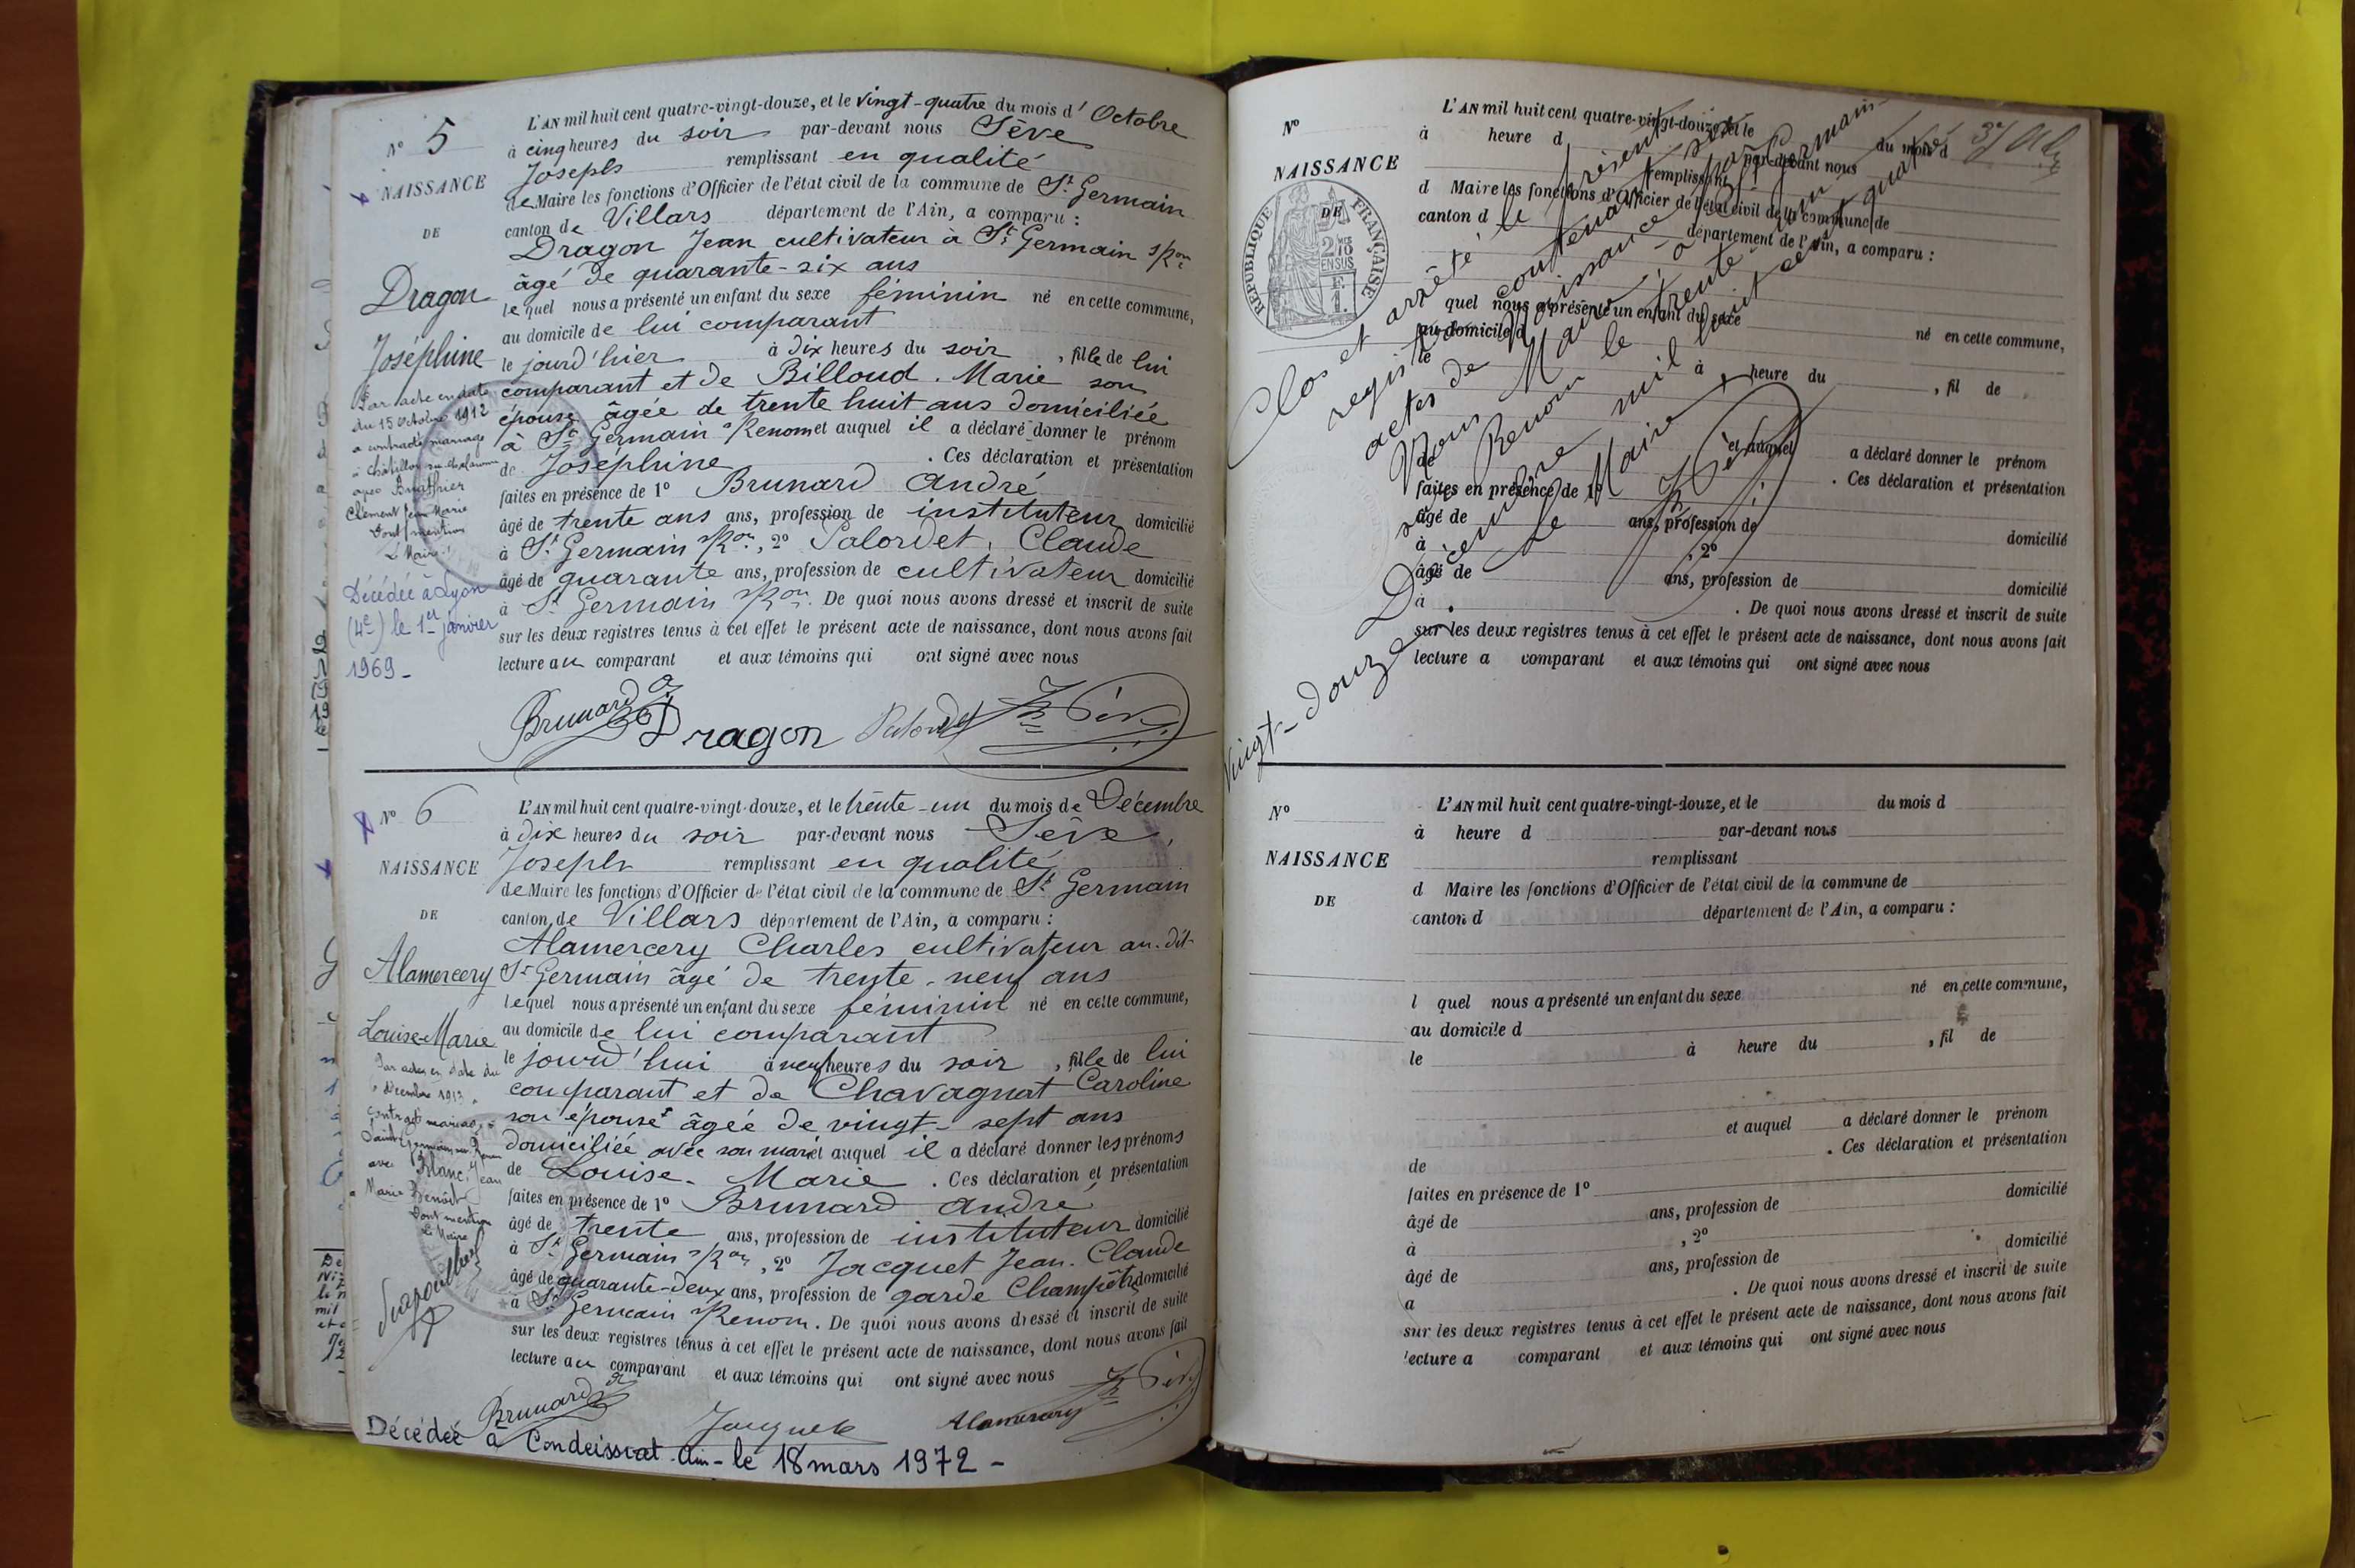 N° 5
NAISSANCE
DE
Dragon
Joséphine
Par acte en date
du 15 Octobre 1912
a contracté mariage
à Châtillon-sur-Chalaronne
avec
Clément Jean Marie
Dont mention
Le Maire
Décédée à Lyon
(4e) le 1er janvier
1969 -
L'AN mil huit cent quatre-vingt-douze, et le vingt-quatre du mois d' Octobre
à cinq heures du soir par-devant nous Sève
Joseph remplissant en qualité
de Maire les fonctions d'Officier de l'état civil de la commune de St Germain
canton de Villars département de l'Ain, a comparu :
Dragon Jean cultivateur à St Germain s/Ron
âgé de quarante-six ans
lequel nous a présenté un enfant du sexe féminin né en cette commune,
au domicile de lui comparant
le jourd'hier à dix heures du soir , fille de lui
comparant et de Billoud Marie son
épouse âgée de trente huit ans domiciliée
à St Germain s/Renom et auquel il a déclaré donner le prénom
de Joséphine . Ces déclaration et présentation
faites en présence de 1° Brunard André
âgé de trente ans ans, profession de instituteur domicilié
à St Germain s/Ron , 2° Palordet, Claude
âgé de quarante ans, profession de cultivateur domicilié
à St Germain s/Ron . De quoi nous avons dressé et inscrit de suite
sur les deux registres tenus à cet effet le présent acte de naissance, dont nous avons fait
lecture au comparant et aux témoins qui ont signé avec nous
Brunard A Dragon Palordet Jh Sève
N° 6
NAISSANCE
DE
Alamercery
Louise-Marie
Par acte en date du
Décembre 1913
contracté mariage à
Saint Germain sur Renom
avec Blanc, Jean
Marie Benoît
Dont mention
Le Maire
L'AN mil huit cent quatre-vingt-douze, et le trente-un du mois de Décembre
à dix heures du soir par-devant nous Sève,
Joseph remplissant en qualité
de Maire les fonctions d'Officier de l'état civil de la commune de St Germain
canton de Villars département de l'Ain, a comparu :
Alamercery Charles cultivateur au-dit
St Germain âgé de trente-neuf ans
lequel nous a présenté un enfant du sexe féminin né en cette commune,
au domicile de lui comparant
le jourd'hui à neuf heures du soir , fille de lui
comparant et de Chavagnat Caroline
son épouse âgée de vingt-sept ans
domiciliée avec son mari et auquel il a déclaré donner les prénoms
de Louise-Marie . Ces déclaration et présentation
faites en présence de 1° Brunard André
âgé de trente ans, profession de instituteur domicilié
à St Germain s/Ron , 2° Jacquet Jean-Claude
âgé de quarante-deux ans, profession de garde Champêtre domicilié
à St Germain s/Renom . De quoi nous avons dressé et inscrit de suite
sur les deux registres tenus à cet effet le présent acte de naissance, dont nous avons fait
lecture au comparant et aux témoins qui ont signé avec nous
Brunard A Jacquet Alamercery Jh Sève
Décédée à Condeissiat - Ain - le 18 mars 1972 -
N°
NAISSANCE
DE
RÉPUBLIQUE FRANÇAISE
2/10
EN SUS
F.
1.
L'AN mil huit cent quatre-vingt-douze, et le du mois d
à heure d par-devant nous
remplissant
d Maire les fonctions d'Officier de l'état civil de la commune de
canton d département de l'Ain, a comparu :
quel nous a présenté un enfant du sexe né en cette commune,
au domicile d
le à heure du , fil de
et auquel a déclaré donner le prénom
de . Ces déclaration et présentation
faites en présence de 1°
âgé de ans, profession de domicilié
à , 2°
âgé de ans, profession de domicilié
à . De quoi nous avons dressé et inscrit de suite
sur les deux registres tenus à cet effet le présent acte de naissance, dont nous avons fait
lecture a comparant et aux témoins qui ont signé avec nous
Clos et arrêté le présent
registre contenant six
actes de Naissance par
Nous Maire à St Germain
s/ Renom le trente-un
Décembre mil huit cent quatre
Vingt-douze
Le Maire,
Jh Sève
N°
NAISSANCE
DE
L'AN mil huit cent quatre-vingt-douze, et le du mois d
à heure d par-devant nous
remplissant
d Maire les fonctions d'Officier de l'état civil de la commune de
canton d département de l'Ain, a comparu :
l quel nous a présenté un enfant du sexe né en cette commune,
au domicile d
le à heure du , fil de
et auquel a déclaré donner le prénom
de . Ces déclaration et présentation
faites en présence de 1°
âgé de ans, profession de domicilié
à , 2°
âgé de ans, profession de domicilié
a . De quoi nous avons dressé et inscrit de suite
sur les deux registres tenus à cet effet le présent acte de naissance, dont nous avons fait
lecture a comparant et aux témoins qui ont signé avec nous